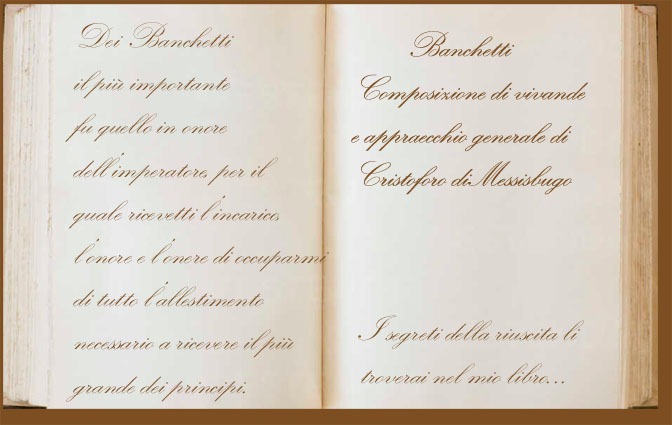 Dei Banchetti
il più importante
fu quello in onore
dell'imperatore, per il
quale ricevetti l'incarico,
l'onore e l'onere di occuparmi
di tutto l'allestimento
necessario a ricevere il più
grande dei principi.
Banchetti
Composizione di vivande
e appraecchio generale di
Cristoforo di Messisbugo
I segreti della riuscita li
troverai nel mio libro...